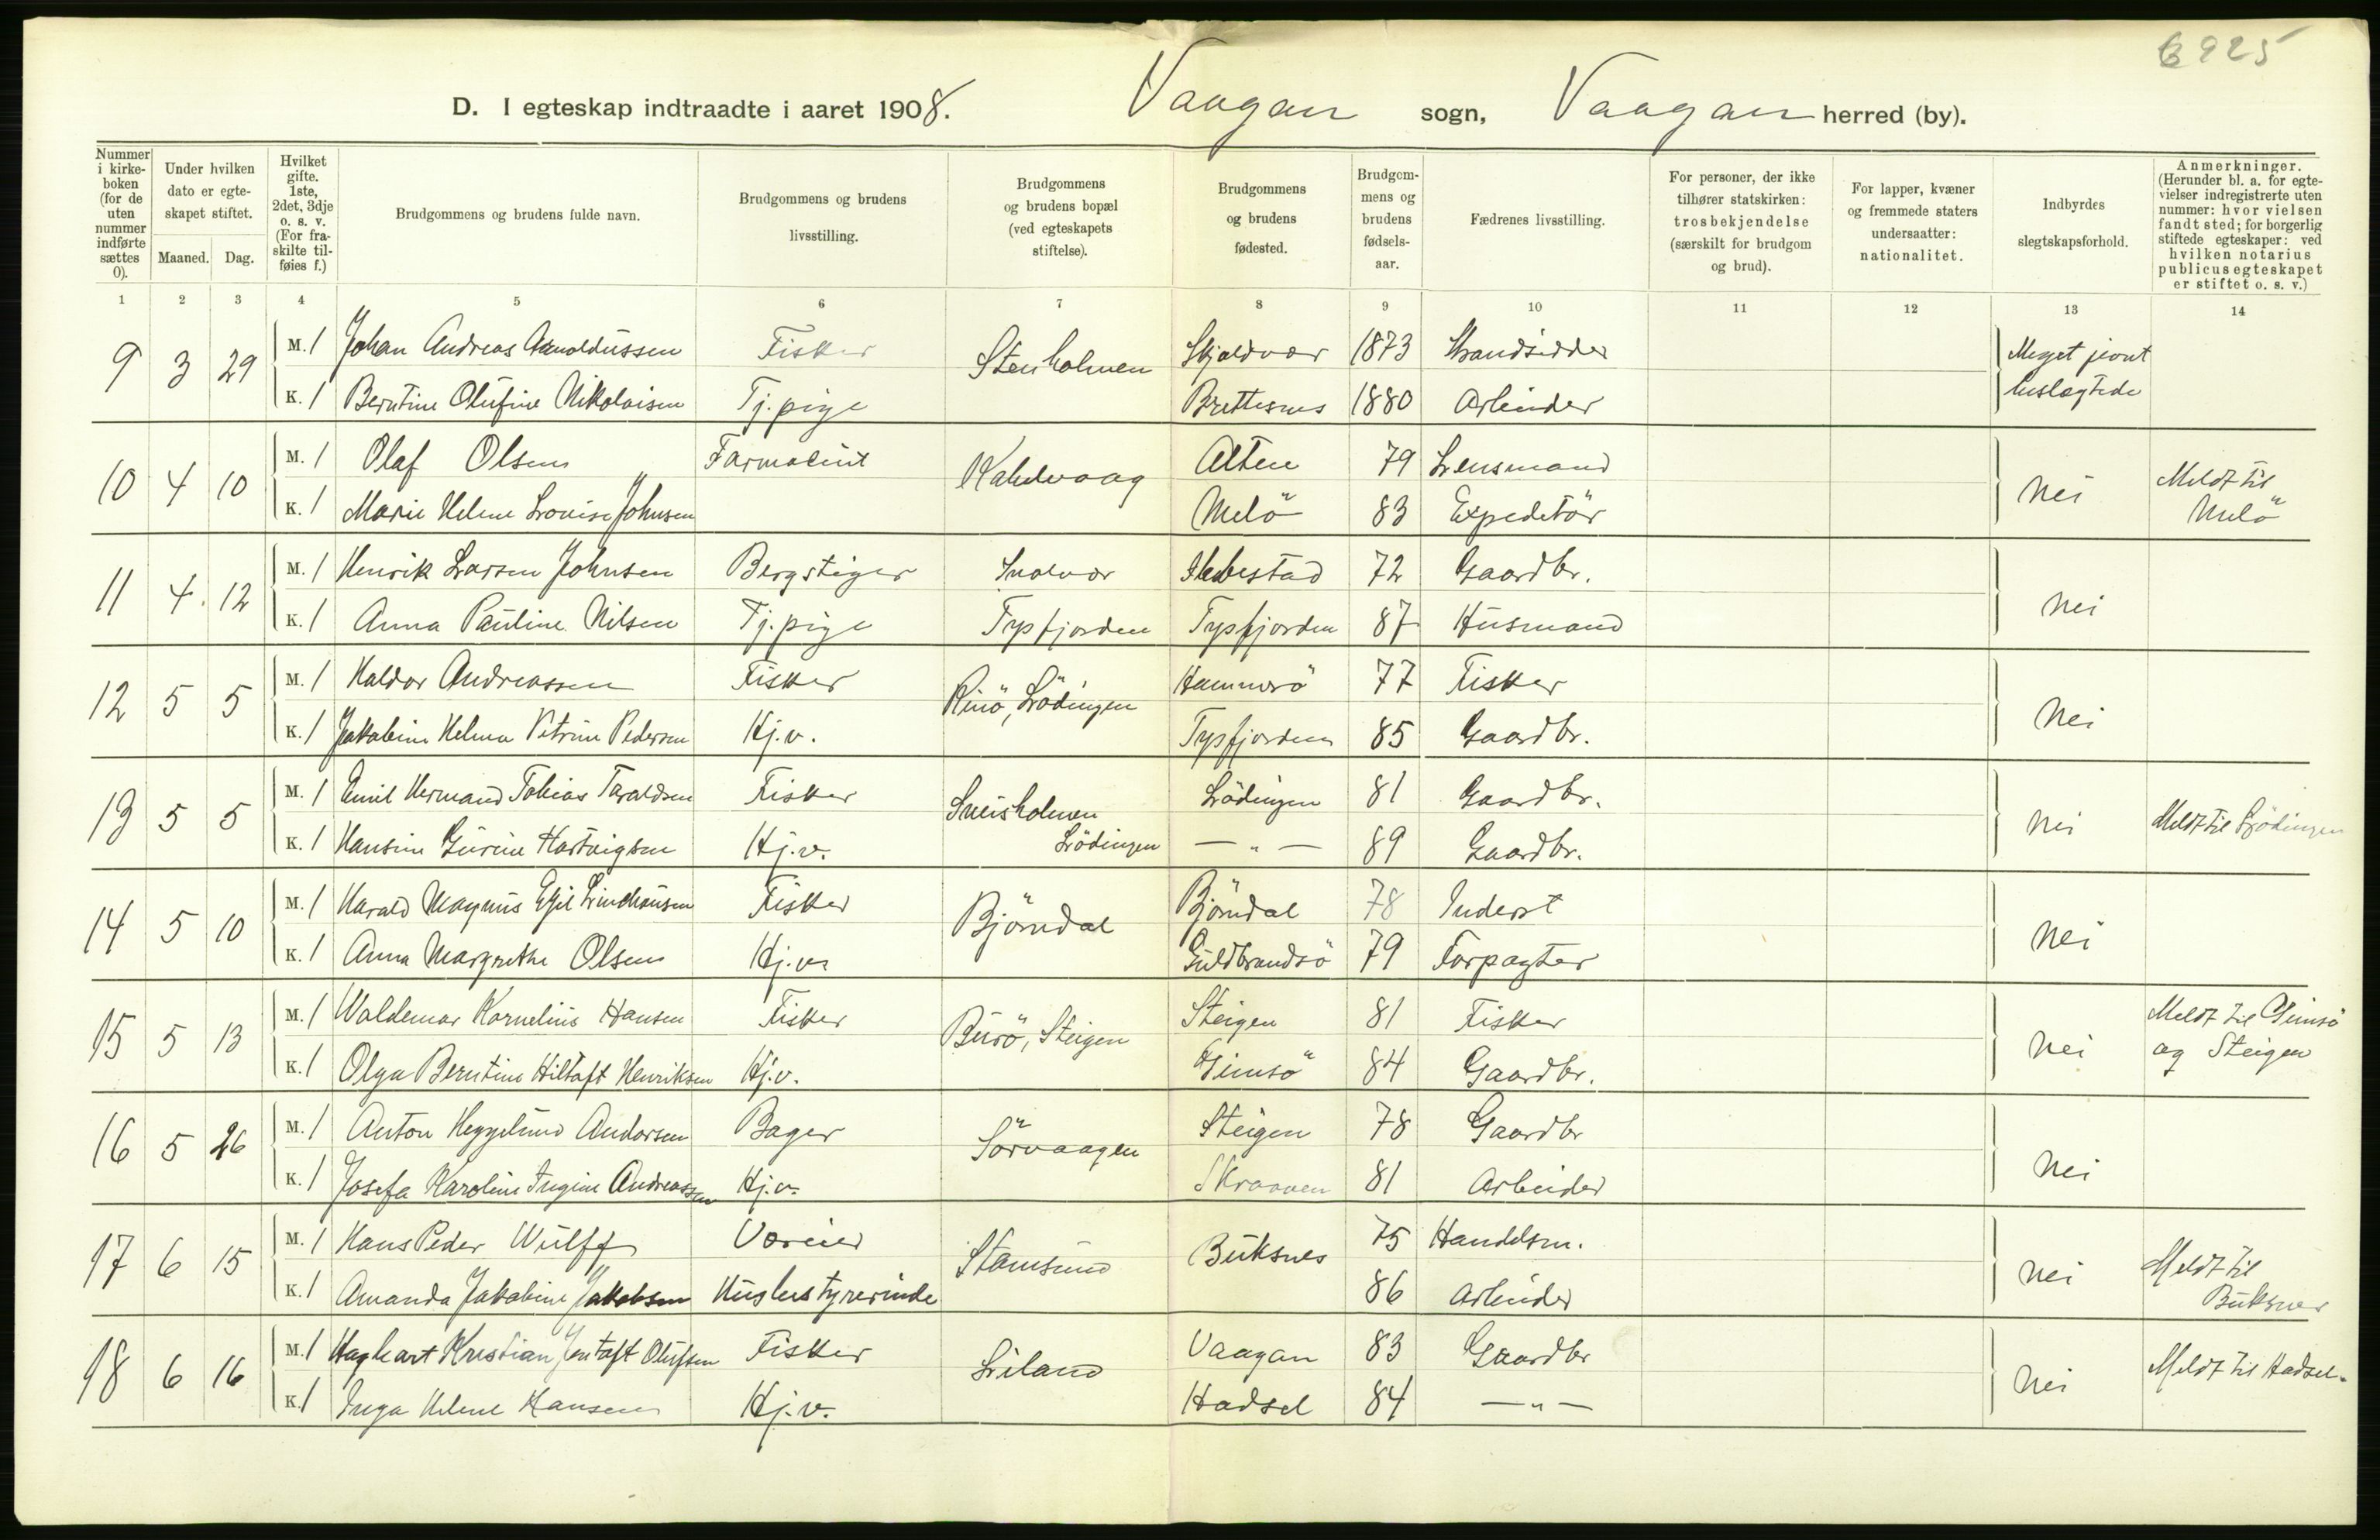 6925
D. I egteskap indtraadte i aaret 1908. Vaagan sogn, Vaagan herred (by).
Nummer i kirke-boken (for de uten nummer indførte sættes 0).
Under hvilken dato er egte-skapet stiftet.
Maaned. Dag.
Hvilket gifte. 1ste, 2det, 3dje o. s. v. (For fra-skilte til-føies f.)
Brudgommens og brudens fulde navn.
Brudgommens og brudens livsstilling.
Brudgommens og brudens bopæl (ved egteskapets stiftelse).
Brudgommens og brudens fødested.
Brudgom-mens og brudens fødsels-aar.
Fædrenes livsstilling.
For personer, der ikke tilhører statskirken: trosbekjendelse (særskilt for brudgom og brud).
For lapper, kvæner og fremmede staters undersaatter: nationalitet.
Indbyrdes slegtskapsforhold.
Anmerkninger. (Herunder bl. a. for egte-vielser indregistrerte uten nummer: hvor vielsen fandt sted; for borgerlig stiftede egteskaper: ved hvilken notarius publicus egteskapet er stiftet o. s. v.)
1 2 3 4 5 6 7 8 9 10 11 12 13 14
9 3 29 M. 1 Johan Andreas Arnoldussen Fisker Stenholmen Skjoldvær 1873 Strandsidder Meget jevnt
K. 1 Berntine Olufine Nikolaisen Tj. pige Brettesnes 1880 Arbeider beslegtede
10 4 10 M. 1 Olaf Olsen Farmaceut Kabelvaag Alten 79 Lensmand nei Meldt til
K. 1 Marie Helene Lovise Johnsen Melö 83 Expeditör Melö
11 4 12 M. 1 Henrik Larsen Johnsen Bergstiger Svolvær 72 Gaardbr. nei
K. 1 Anna Pauline Nilsen Tj. pige Tysfjorden Tysfjorden 87 Husmand
12 5 5 M. 1 Haldor Andreassen Fisker Rinö, Lödingen Hammerö 77 Fisker nei
K. 1 Jakobine Helma Petrine Pedersen Hj. v. Tysfjorden 85 Gaardbr.
13 5 5 M. 1 Emil Hermand Tobias Taraldsen Fisker Lödingen 81 Gaardbr. nei Meldt til Lödingen
K. 1 Hansine Gurine Hartvigsen Hj. v. Lödingen — " — 89 Gaardbr.
14 5 10 M. 1 Harald Magnus Egil Fisker Björndal Björndal 78 Inderst nei
K. 1 Anna Margrethe Olsen Hj. v. Guldbrandsö 79 Forpagter
15 5 13 M. 1 Waldemar Kornelius Hansen Fisker Burö, Steigen Steigen 81 Fisker nei Meldt til Gimsö
K. 1 Olga Berntine Hiltaft Henriksen Hj. v. Gimsö 84 Gaardbr. og Steigen
16 5 26 M. 1 Anton Heggelund Andorsen Bager Sörvaagen Steigen 78 Gaardbr nei
K. 1 Josefa Karoline Ingine Andreassen Hj. v. Skraaven 81 Arbeider
17 6 15 M. 1 Hans Peder Wulff Væreier Stamsund Buksnes 75 Handelsm. nei Meldt til
K. 1 Amanda Jakobine Jakobsen Husbestyrerinde 86 Arbeider Buksnes
18 6 16 M. 1 Hagbart Kristian Jentoft Olufsen Fisker Liland Vaagan 83 Gaardbr nei Meldt til Hadsel.
K. 1 Inga Helene Hansen Hj. v. Hadsel 84 — " —